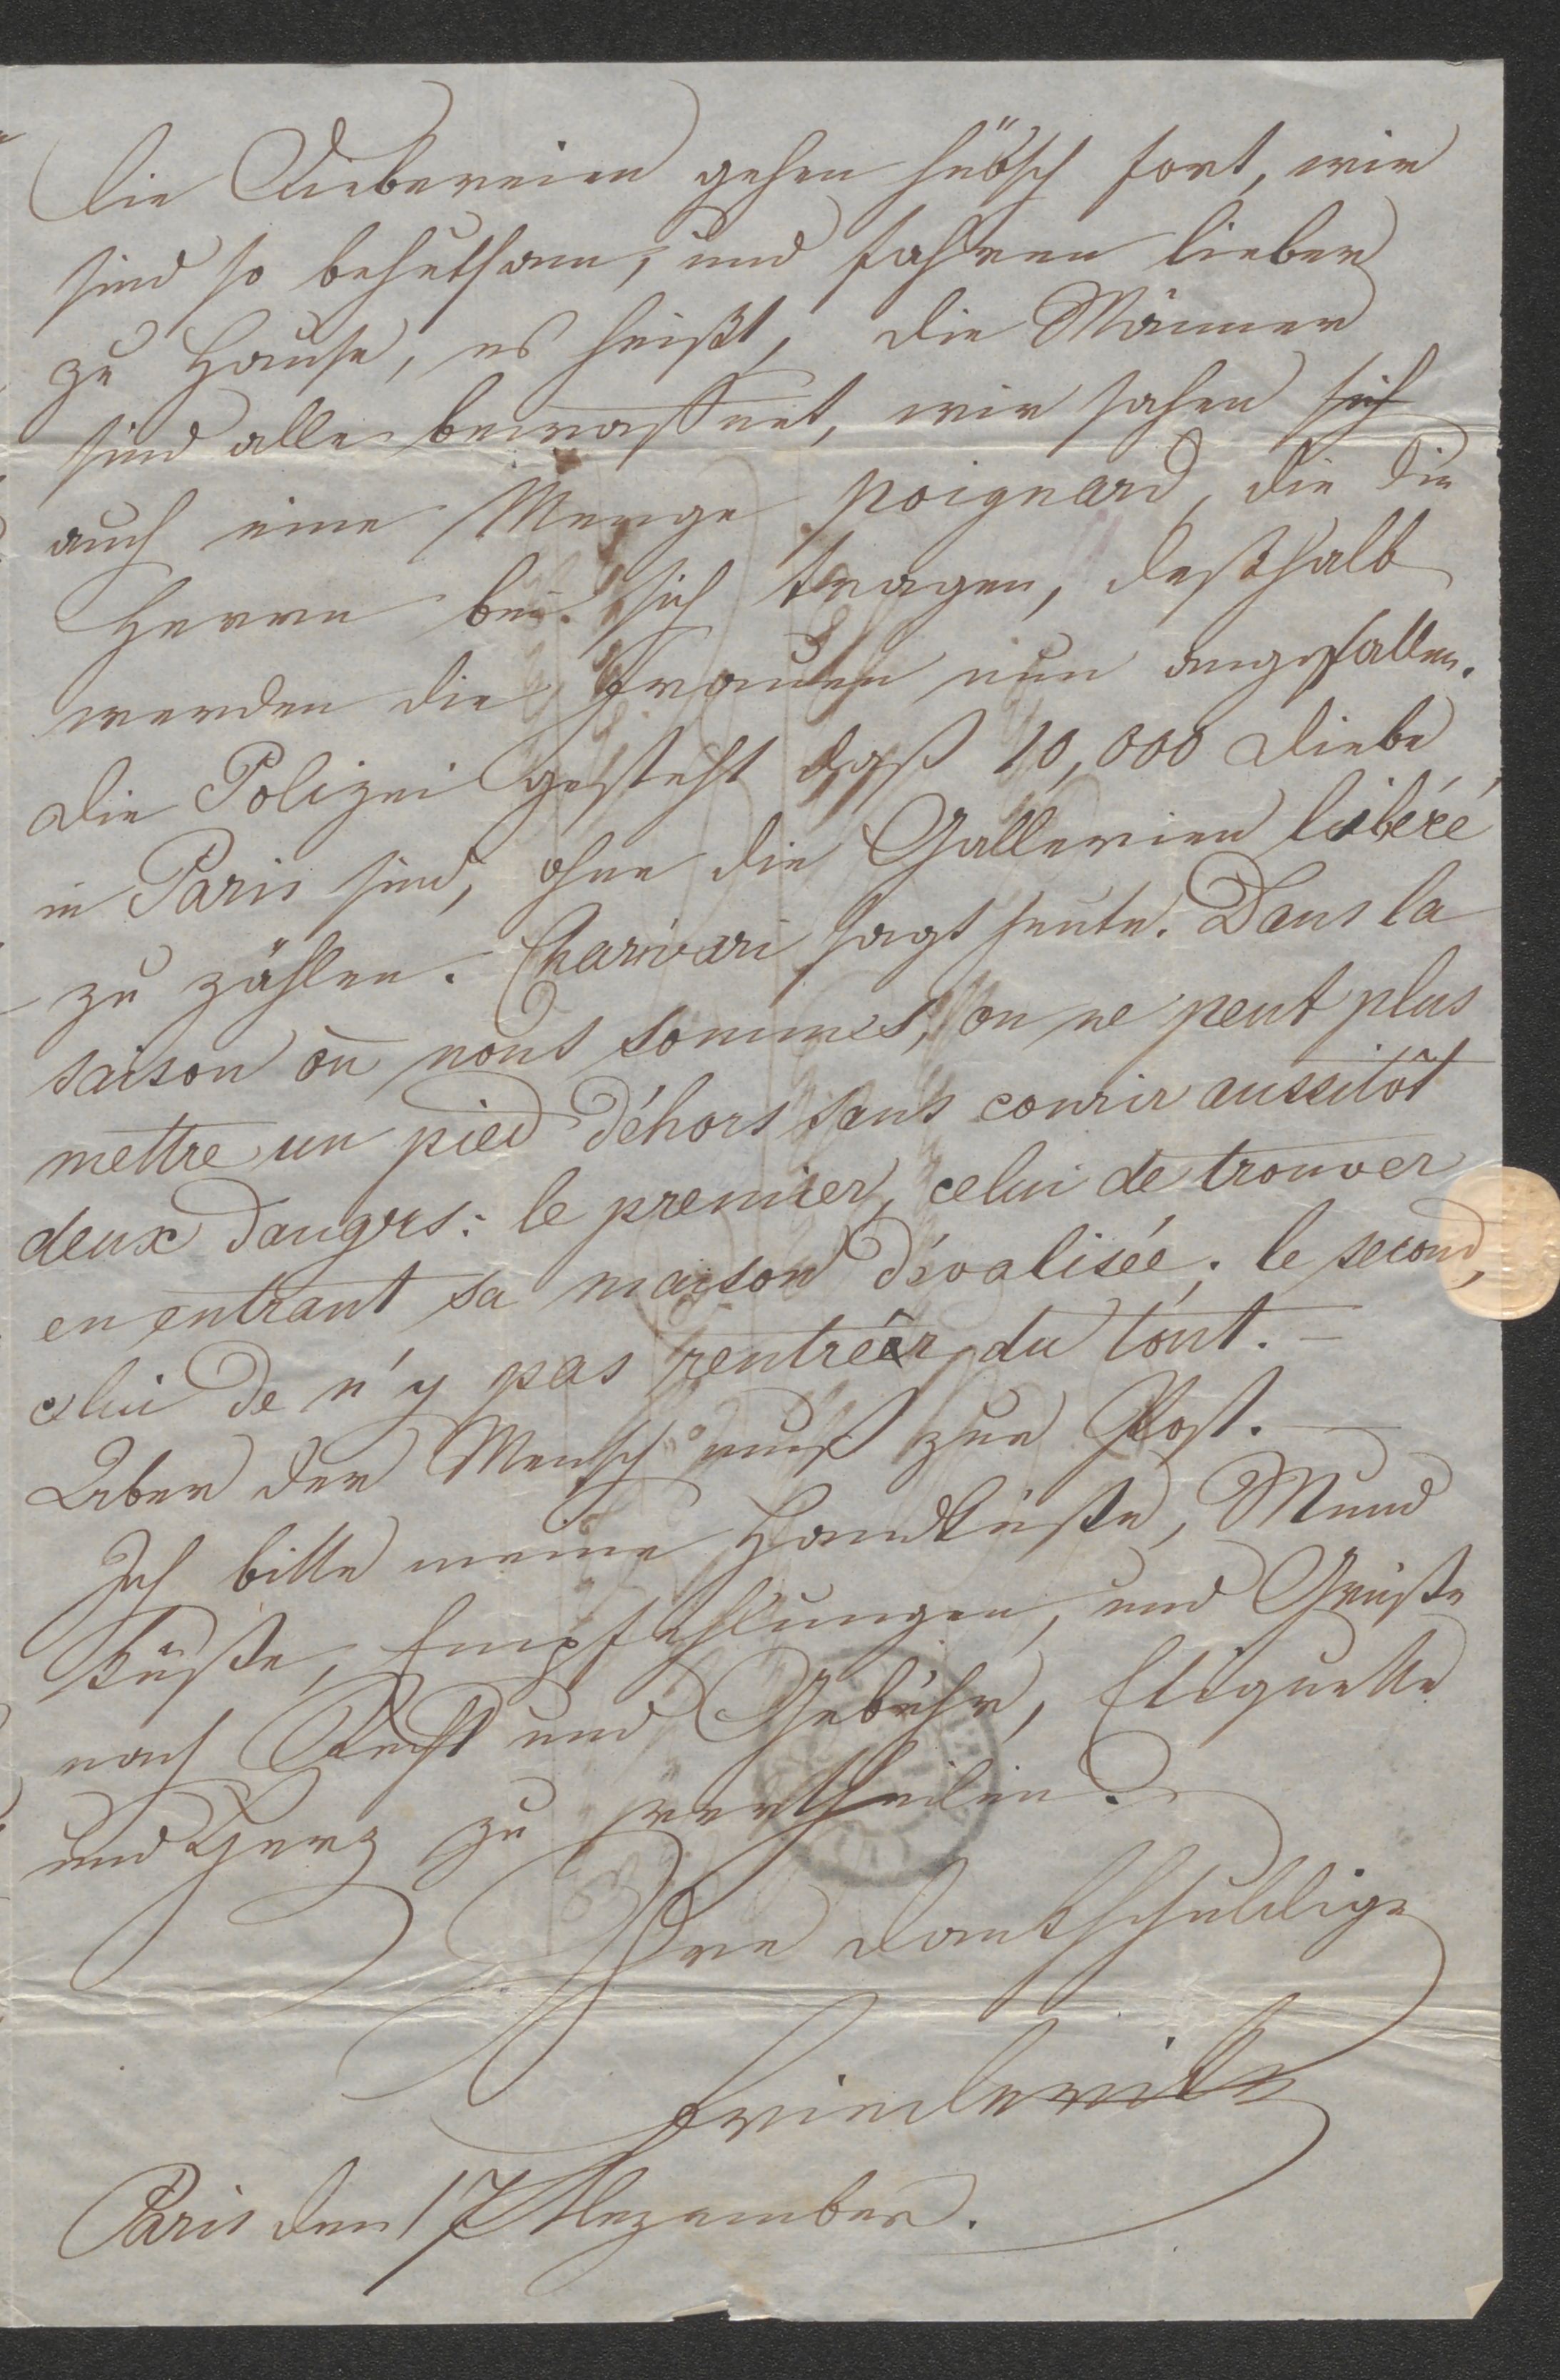 Die Diebereien gehen hübsch fort, wir
sind so behutsam, und fahren lieber
zu Hause, es heißt, die Männer
sind alle bewaffnet, wir sahen sich
auch eine Menge poignard, die die
Herren bei sich tragen, deßhalb
werden die Frauen nun angefallen.
Die Polizei gesteht daß 10,000 Diebe
in Paris sind, ohne die Gallerien libéré
zu zählen. Charivari sagt heute. Dans la
saison où nous sommes, on ne peut plus
mettre un pied déhors sans courir aussitôt
deux dangers: le premier, celui de trouver
en entrant sa maison dévalisée; le second,
celui de n'y pas rentrer du tout. –
Aber der Mensch muß zur Post. –
Ich bitte meine Handküße, Mund
küße, Empfehlungen, und Grüße
nach Recht und Gebühr, Etiquette
und Herz zu vertheilen.
Ihre dankschuldige
Friederike
Paris den 17 Dezember.